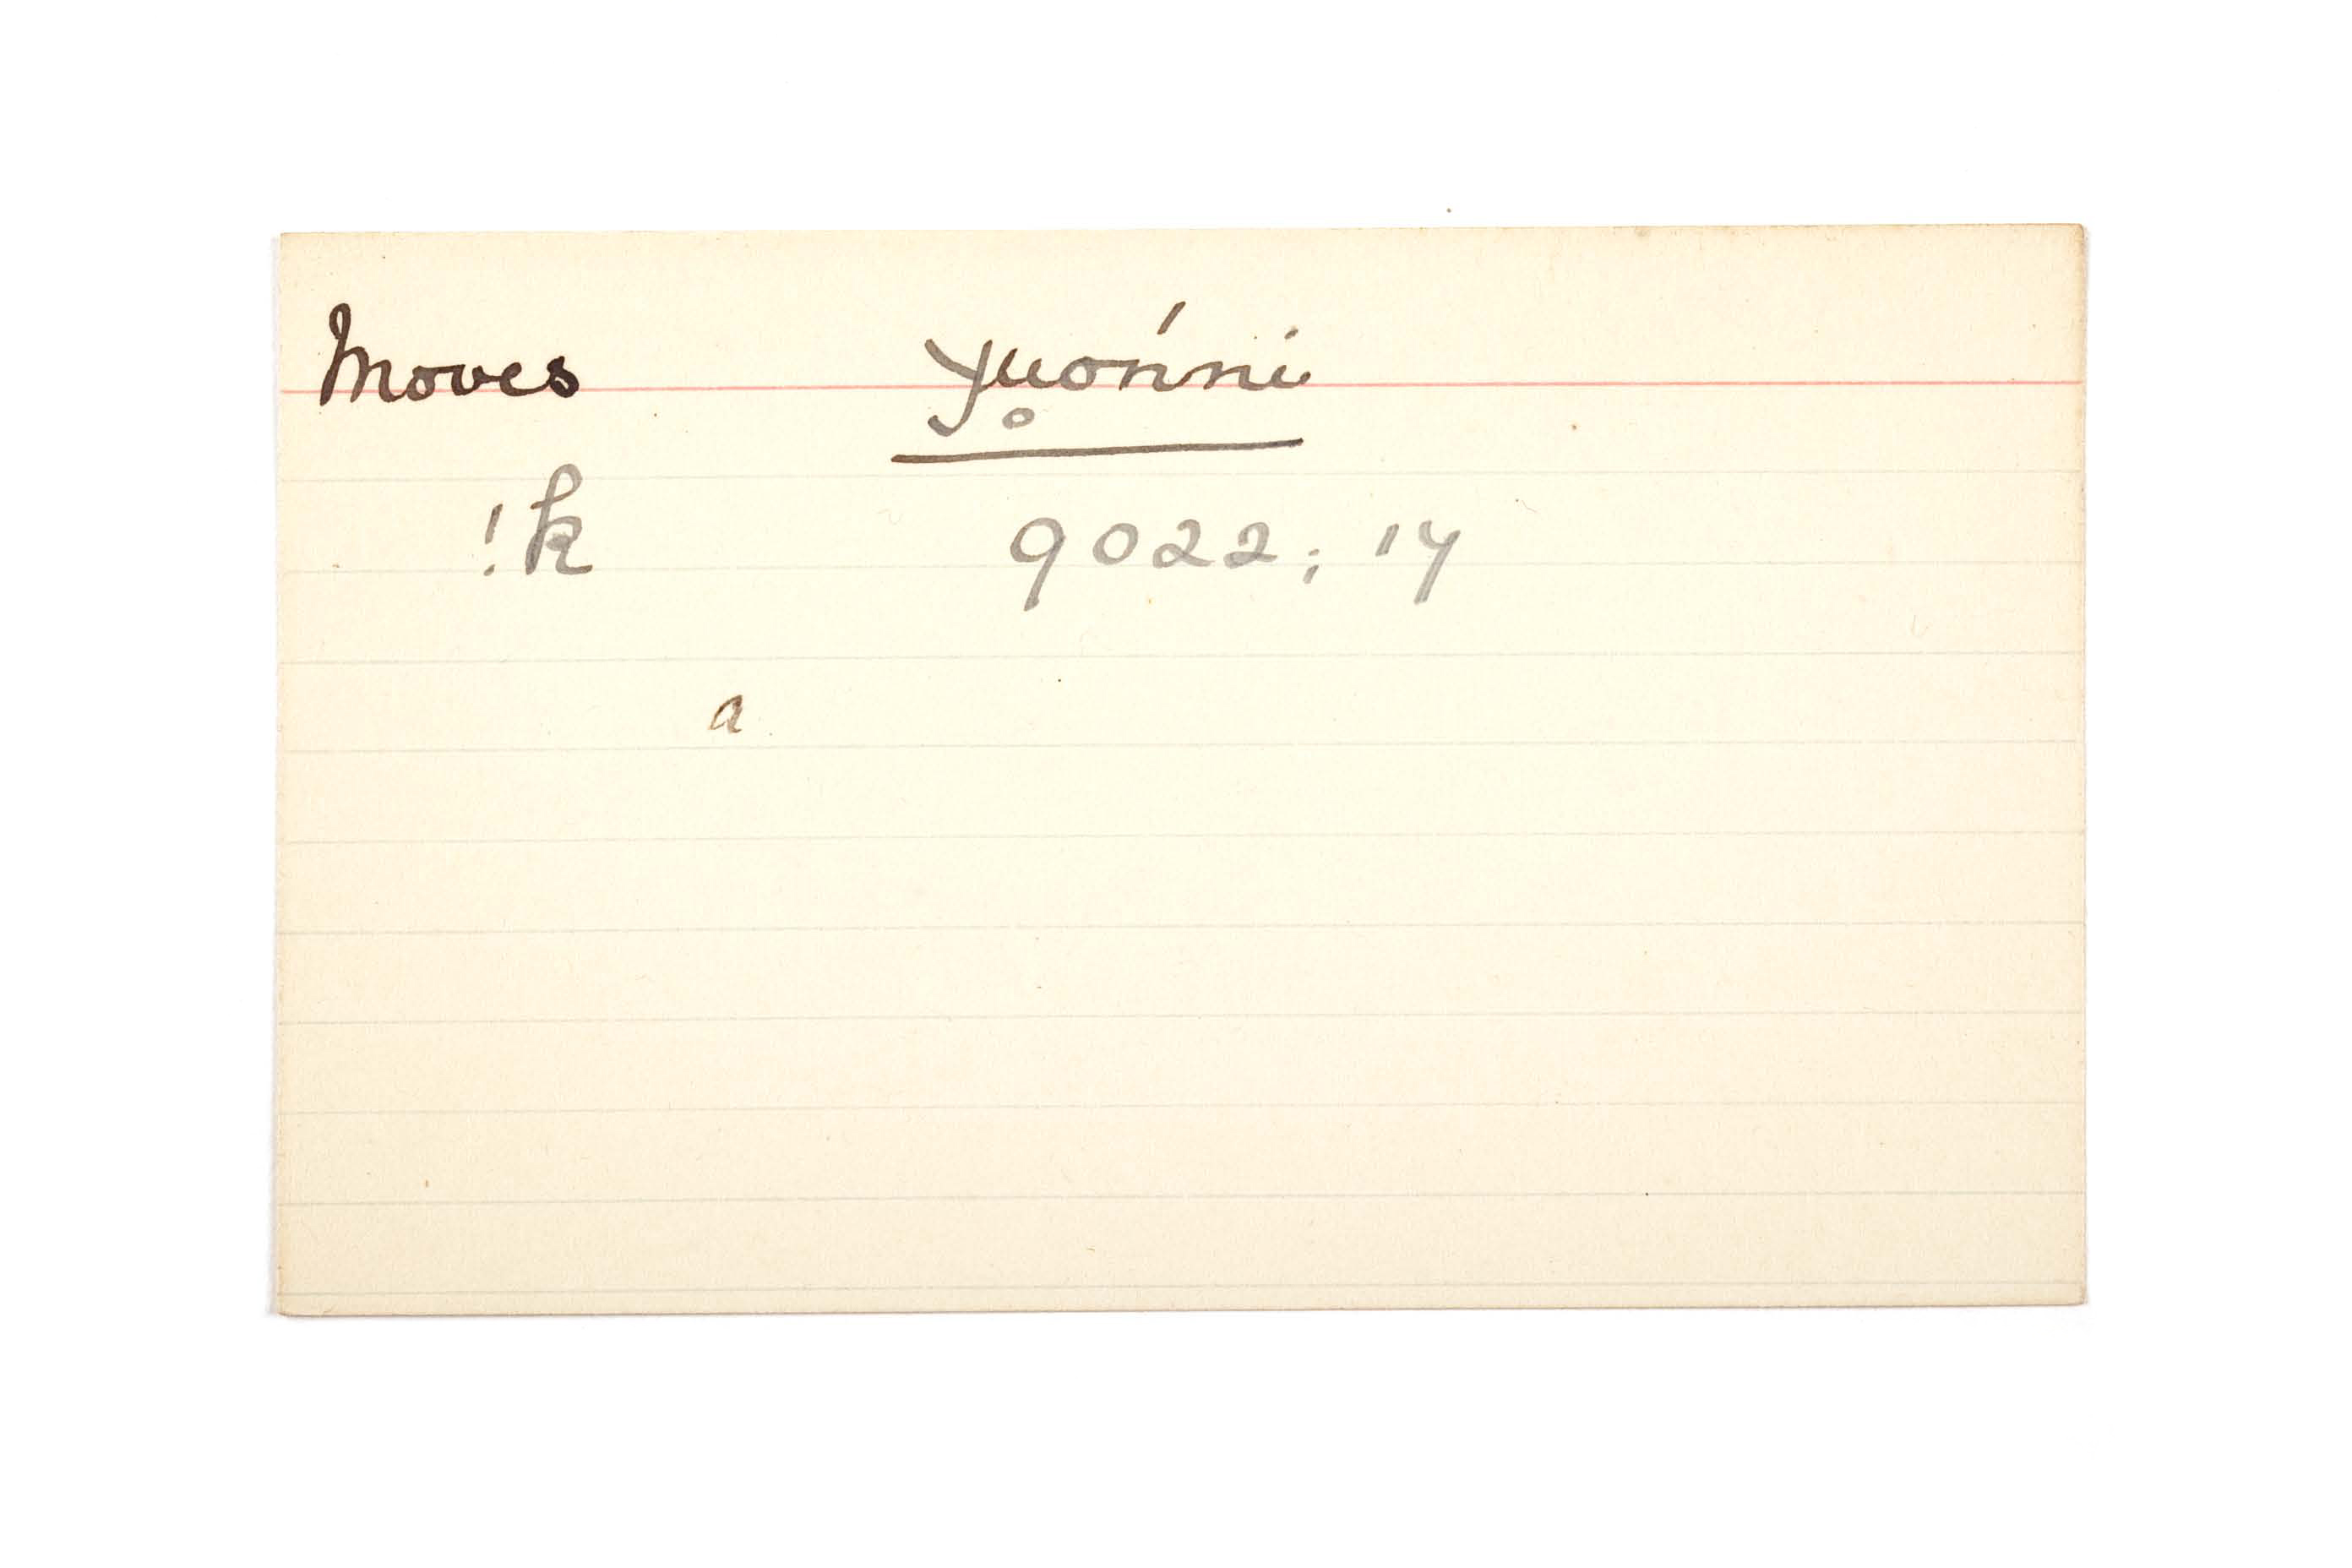 Moves χu̥óṅni
!k 9022; 17
a